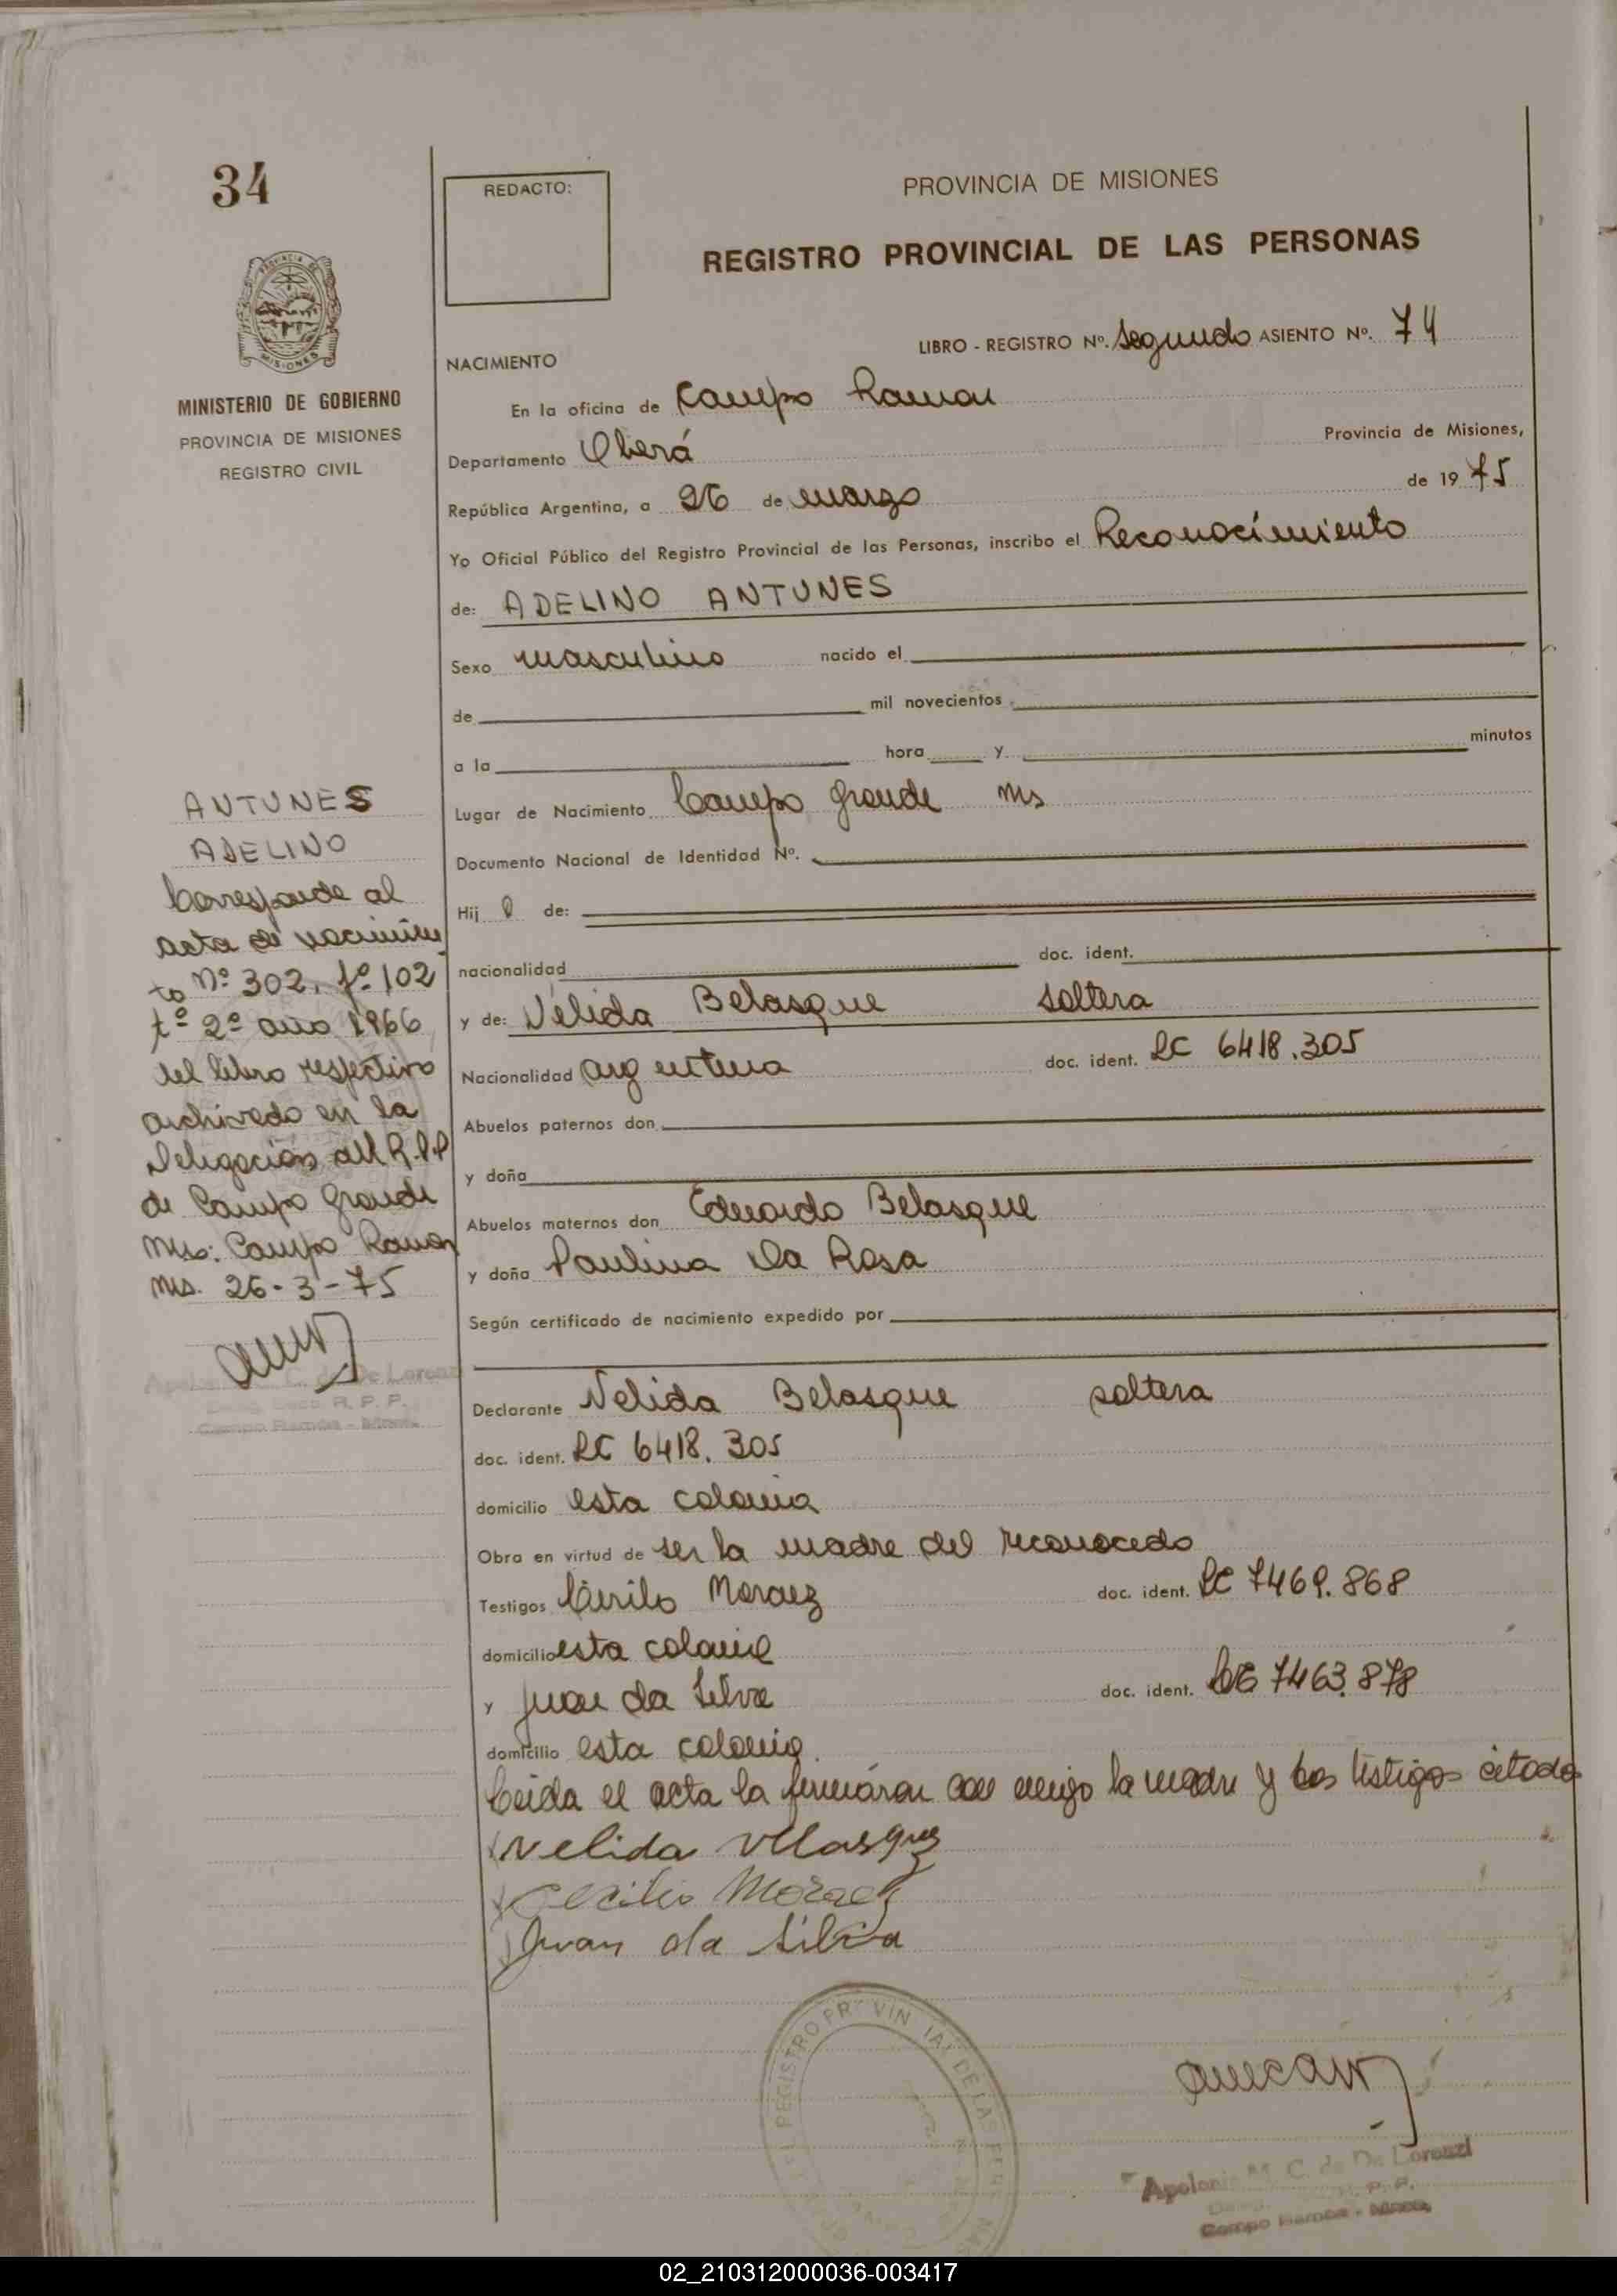 34
REDACTO:
PROVINCIA DE MISIONES
REGISTRO PROVINCIAL DE LAS PERSONAS
LIBRO - REGISTRO Nº. Segundo ASIENTO Nº. 74
NACIMIENTO
En la oficina de Campo Ramon
Departamento Oberá Provincia de Misiones,
República Argentina, a 26 de marzo de 1975
Yo Oficial Público del Registro Provincial de las Personas, inscribo el Reconocimiento
de: ADELINO ANTUNES
Sexo masculino nacido el
de mil novecientos
a la hora y minutos
Lugar de Nacimiento Campo Grande Ms
Documento Nacional de Identidad Nº.
Hij o de:
nacionalidad doc. ident.
y de: Nélida Belasque soltera
Nacionalidad argentina doc. ident. LC 6418.305
Abuelos paternos don
y doña
Abuelos maternos don Eduardo Belasque
y doña Paulina Da Rosa
Según certificado de nacimiento expedido por
Declarante Nelida Belasque soltera
doc. ident. LC 6418.305
domicilio esta colonia
Obra en virtud de ser la madre del reconocedo
Testigos Cirilo Moraez doc. ident. LE 7469.868
domicilio esta colonia
y Juan da Silva doc. ident. 7463.878
domicilio esta colonia.
Leida el acta la firmáron con migo la madre y los testigos citados
Nelida Vllasquez
Cecilio Moraez
Juan da Silva
Apolonia M. C. de De Lorenzi
R. P. P.
Campo Ramón - Mnes.
MISIONES
MINISTERIO DE GOBIERNO
PROVINCIA DE MISIONES
REGISTRO CIVIL
ANTUNES
ADELINO
Corresponde al
acta de nacimien
to Nº 302, fº 102
tº 2º año 1966
del libro respectivo
archivado en la
Delegación del R.P.P
de Campo Grande
Mns: Campo Ramon
Mns. 26-3-75
Apolonia M. C. de De Lorenzi
R. P. P.
Campo Ramón - Mnes.
REGISTRO PROVINCIAL DE LAS
02_210312000036-003417